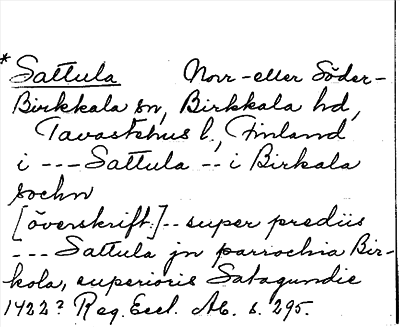 * Sattula Norr- eller Söder-
Birkkala sn, Birkkala hd,
Tavastehus l., Finland
i --- Sattula -- i Birkala
sochn
[överskrift:] -- super prediis
--- Sattula jn parrochia Bir-
kola, superioris Satagundie
1422? Reg. Eccl. Ab. s. 295.